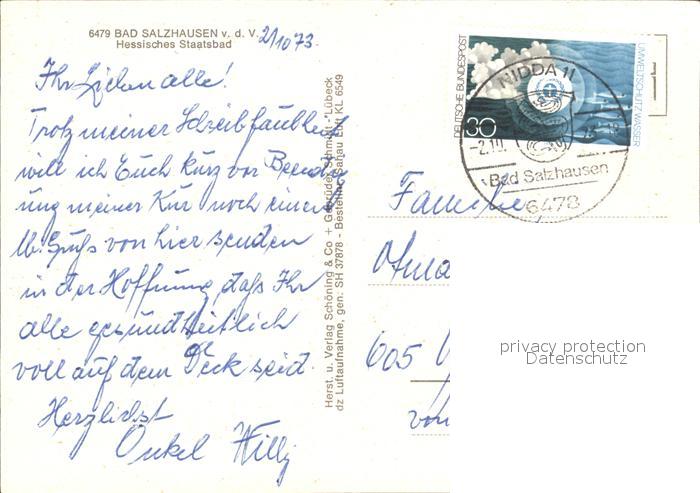 6479 BAD SALZHAUSEN v. d. V.
Hessisches Staatsbad
2/10 73.
Ihr Lieben alle!
Trotz meiner Schreibfaulheit
will ich Euch kurz vor Beendig
ung meiner Kur noch einen
lb. Gruß von hier senden
in der Hoffnung, daß Ihr
alle gesundheitlich
voll auf dem Deck seid.
Herzlichst
Onkel Willy
Herst. u. Verlag Schöning & Co + Gebrüder Schmidt - Lübeck
dz Luftaufnahme, gen: SH 37878 - Bestellnr. KL 6549
DEUTSCHE BUNDESPOST
30
UMWELTSCHUTZ WASSER
NIDDA 11
-2.10.
Bad Salzhausen
6478
Familie
Otma
605
von
privacy protection
Datenschutz